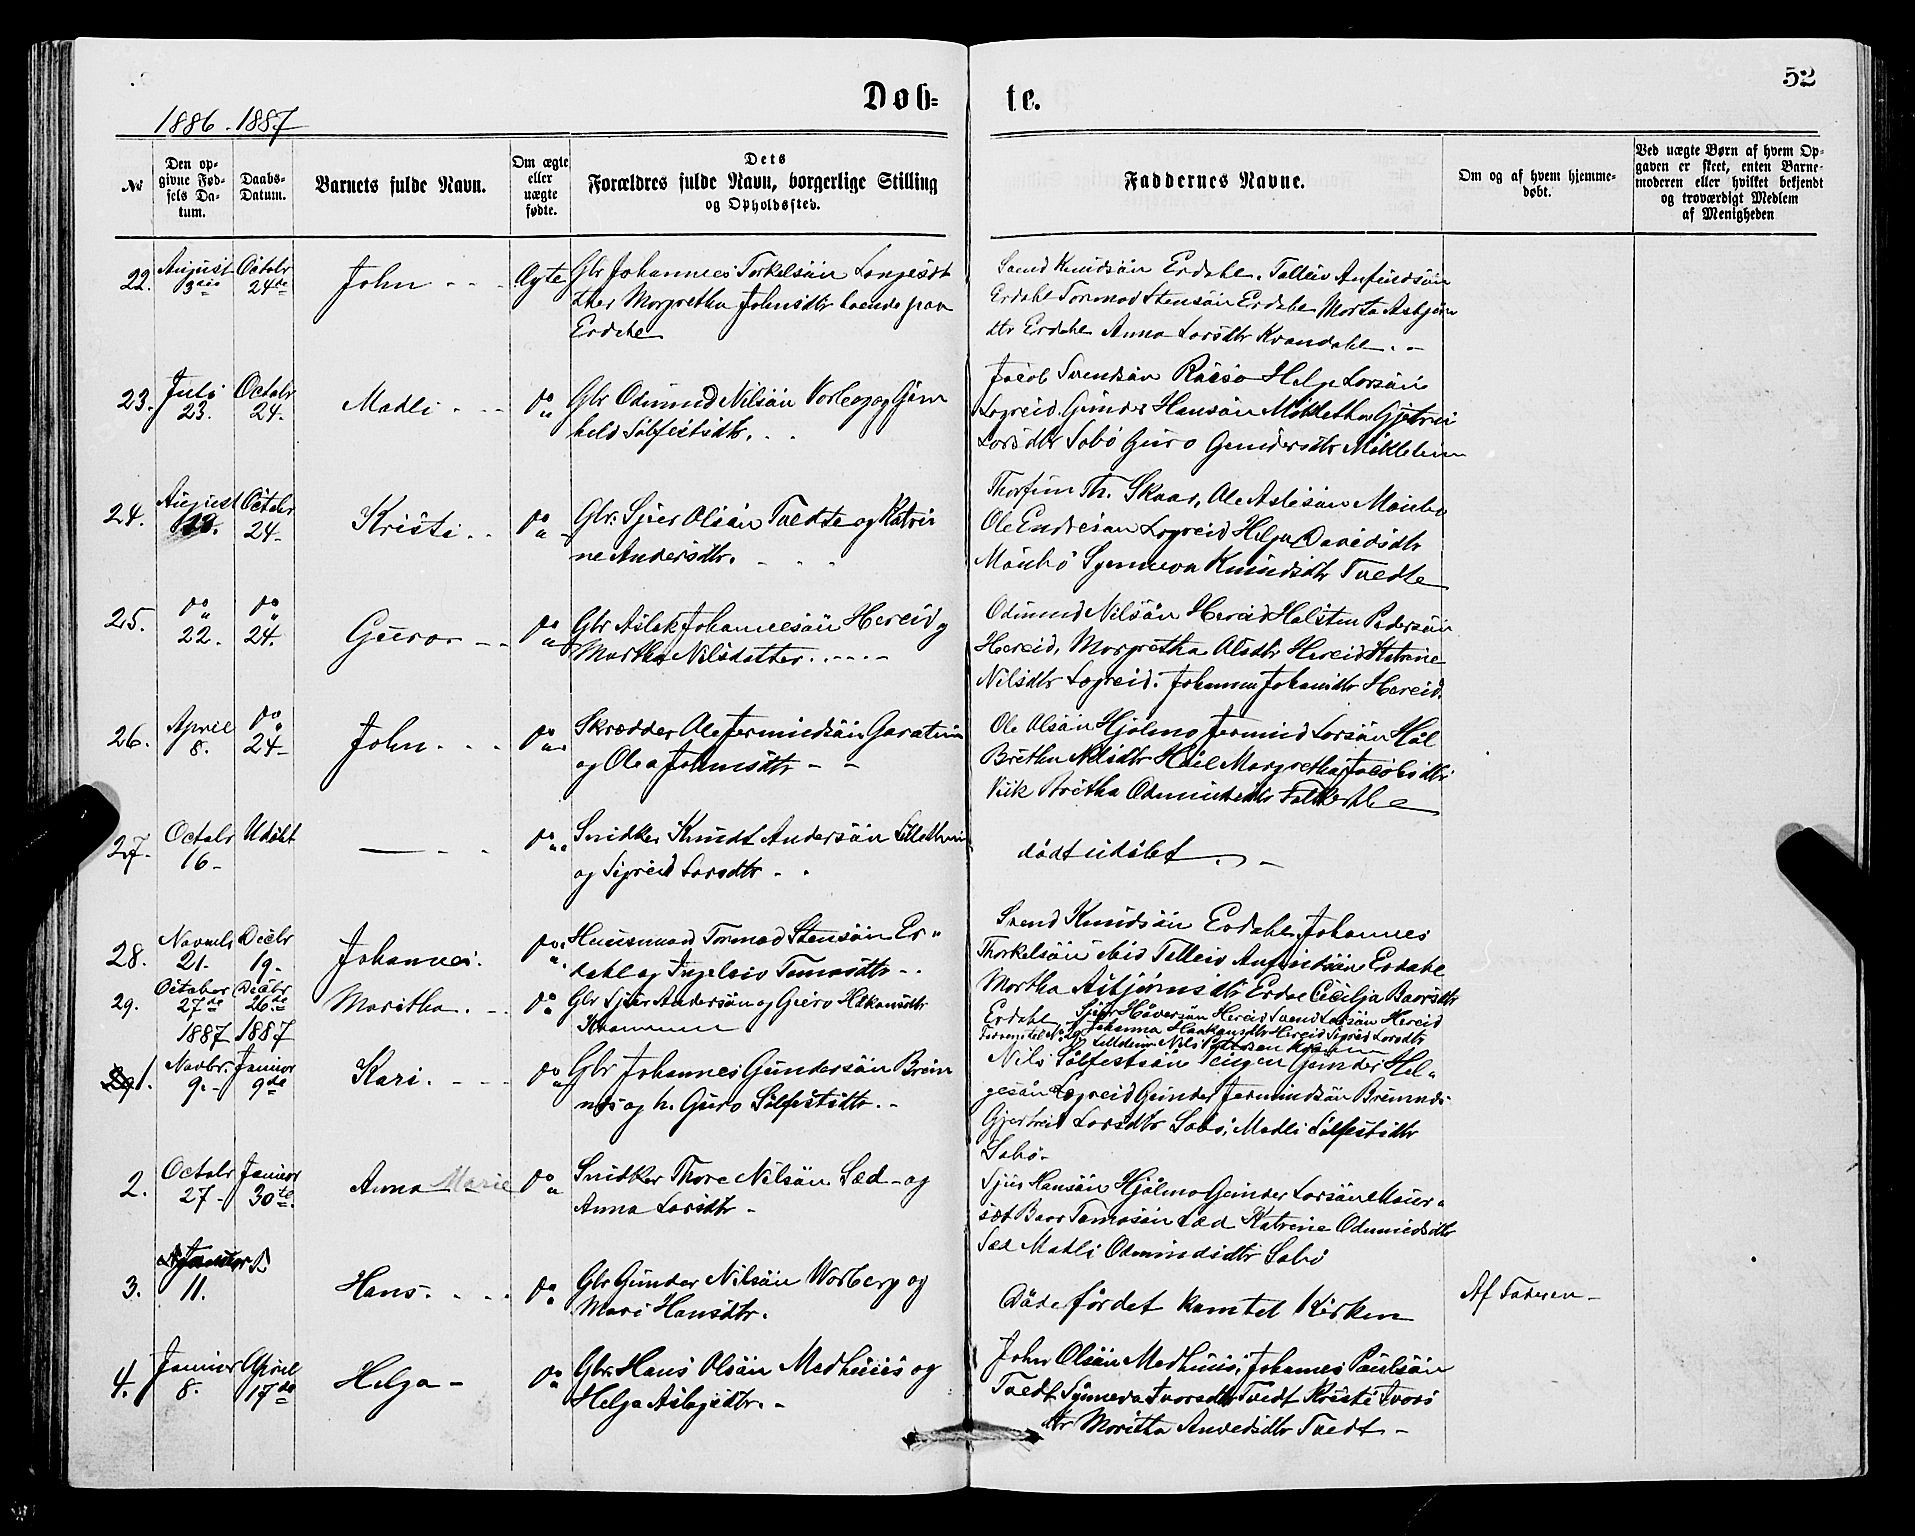 52
Døb- te.
1886. 1887
№
Den op-
givne Fød-
sels Da-
tum.
Daabs-
Datum.
Barnets fulde Navn.
Om ægte
eller
uægte
fødte.
Dets
Forældres fulde Navn, borgerlige Stilling
og Opholdssted.
Faddernes Navne.
Om og af hvem hjemme-
døbt.
Ved uægte Børn af hvem Op-
gaven er skeet, enten Barne-
moderen eller hvilket bekjendt
og troværdigt Medlem
af Menigheden
22. August Octobr 24de John Ægte Gbr Johannes Torkelsön
Morgretha Johnsdtr boende paa
Erdahl
Svend Knudsön Erdahl. Tolleiv Anfindsön
Erdahl Tormod Stensön Erdahl Morta Asbjörn
dtr Erdahl Anna Larsdtr Krondahl
23. Juli 23. Octobr 24. Madli do Gbr Odmund Nilsön og Gun
hild Sölfestsdtr.
Jacob Svendsön Helge Larsön
Legreid Gunder Hansön
Larsdtr Sæbö Guro Gundersdtr
24. August Octobr 24 Kristi do Gbr. Sjur Olsön Tvedte og Katri
ne Andersdtr.
Thorfinn Th. Skaar, Ole Aslesön
Ole Endresön Legreid Helga Davidsdtr
Synneva Knudsdtr Tvedte
25. do 22. do 24. Guro do Gbr Aslak Johannesön Hereid og
Martha Nilsdatter
Odmund Nilsön Hereid Halsten Pedersön
Hereid, Morgretha Olsdtr Hereid Katrine
Nilsdtr Legreid. Johannesdtr Hereid.
26. April 8. do 24 John do Skrædder Ole Jermundsön Garatun
og Olea Johnsdtr
Ole Olsön Hjölmo Jermund Larsön Hæl
Britha Nilsdtr Hæl Margretha Jacobsdtr
Viik Britha Odmundsdtr
27. Octobr 16 Udöbt do Snidker Knudt Andersön Lilletun
og Sigrid Larsdtr
dödt udöbt
28. Novmb 21. Decbr 19. Johannes. do Huusmand Tormod Stensön Er-
dahl og Ingeleiv Tomasdtr
Svend Knudsön Erdahl Johannes
Thorkelsön ibid Tolleiv Anfindsön Erdahl
Mortha Asbjörnsdtr Erdal Cicilja Baarsdtr
Erdahl
29. October 27de Decbr 26de Maritha. do Gbr Sjur Andersön og Guro Håkonsdtr
Sjur Håversön Hereid Svend Larsön Hereid
Johanna Haakonsdtr Hereid Sigrid Larsdtr
Lilletun Nils
1887 1887
1. Novbr. 9. Januar 9de Kari. do Gbr Johannes Gundersön Brim
næs og h. Guro Sölfestsdtr.
Nils Sölfestsön Teigen Gunder Hel-
gesön Legreid Gunder Jermundsön Brimnæs
Gjertrud Larsdtr Sæbö, Madli Sölfestsdtr
Sæbö
2. Octobr 27 Januar 30te. Anna Marie do Snidker Thore Nilsön Sæd og
Anna Larsdtr
Sjur Hansön Hjölmo Gunder Larsön Maur-
sæt Baar Tomasön Sæd Katrine Odmundsdtr
Sæd Madli Odmundsdtr Sæbö
3. 11. Hans. do Gbr Gunder Nilsön Worberg og
Mari Hansdtr.
Döde för det kom til Kirken
Af Faderen
4. Januar 8. April 17de Helga do Gbr. Hans Olsön Medhuus og
Helga Aslagsdtr.
John Olsön Medhuus, Johannes Paulsön
Tvedt Synneva Ivarsdtr Tvedt Kristi Ivars
dtr Moritha Andersdtr Tvedt